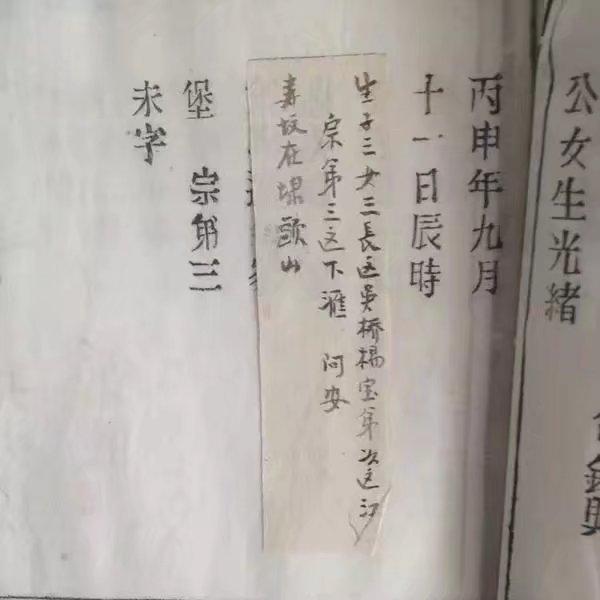 公女生光緒
丙申年九月
十一日辰時
生子三女三長适吳橋楊宝第次适江
宗第三适下滙 阿安
寿坟在埭頭山
堡 宗第三
未字